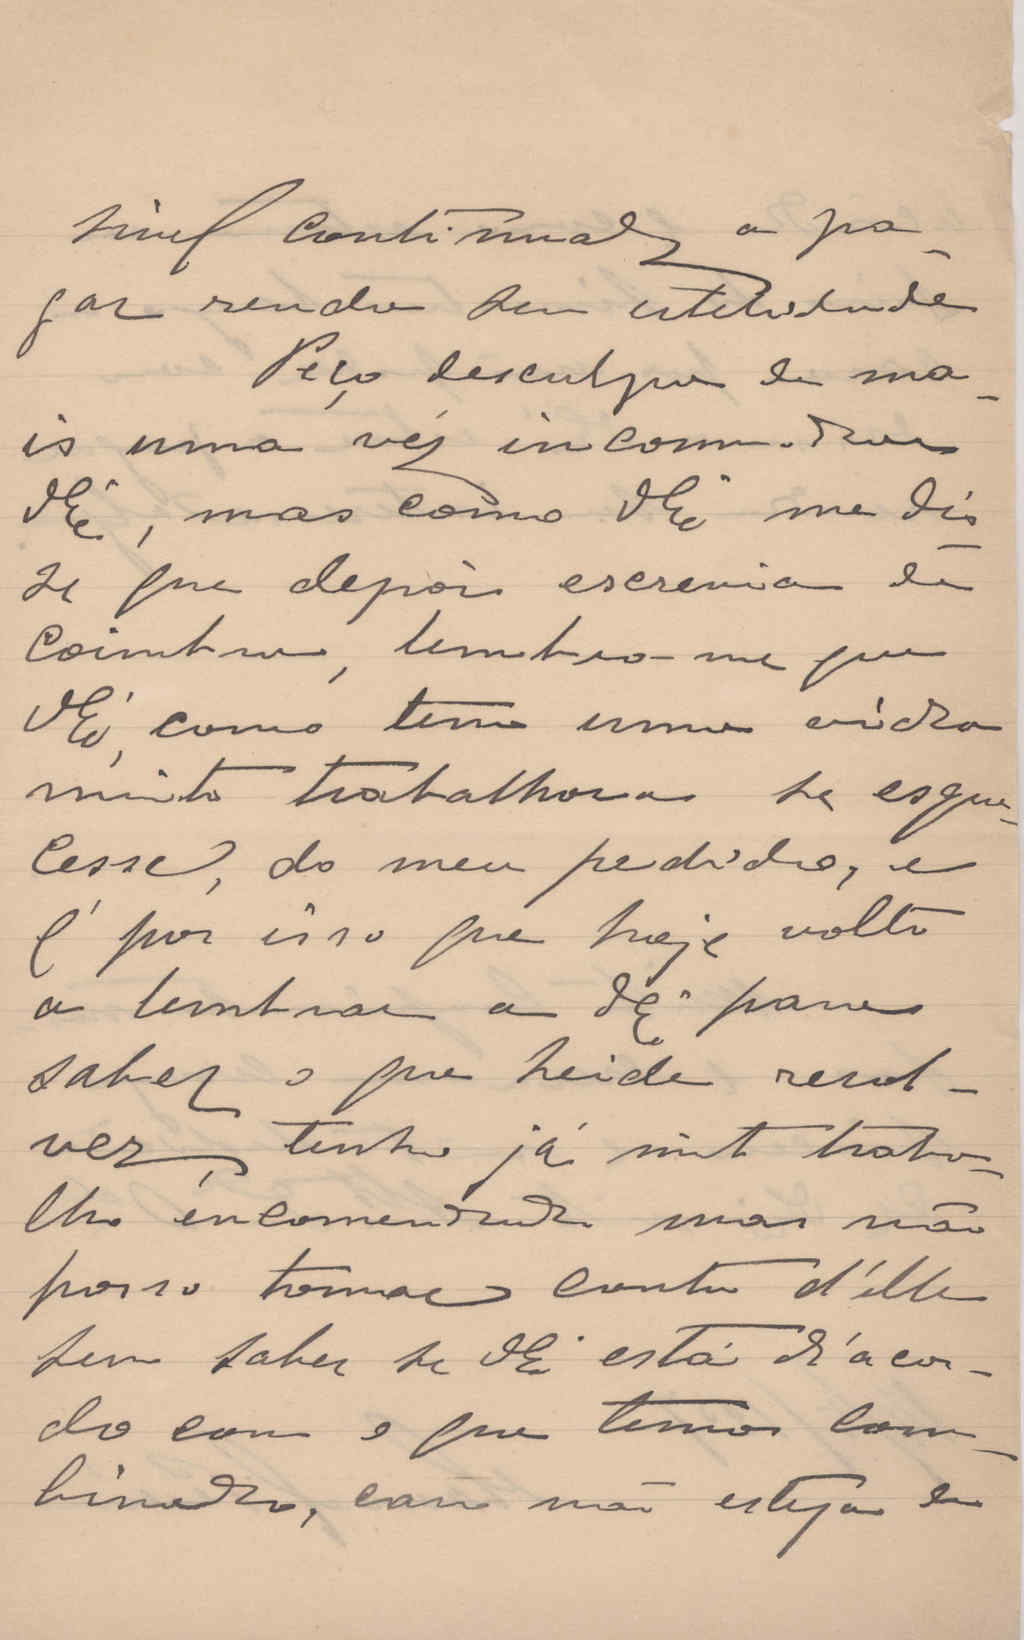 sivel continuar a pa-
gar renda sem utelidade
Peço desculpa de ma-
is uma vez incommodar
V. Ex.ª, mas como V. Ex.ª me dis
se que depois escrevia de
Coimbra, lembro-me que
V. Ex.ª, como tem uma vida
muito trabalhosa se esque-
cesse, do meu pedido, e
é por isso que hoje volto
a lembrar a V. Ex.ª para
saber o que heide resol-
ver, tenho já muito traba-
lho encomendado mas não
posso tomar conta d'elle
sem saber se V. Ex.ª está d'acor-
do com o que temos com-
binado, caso não esteja de